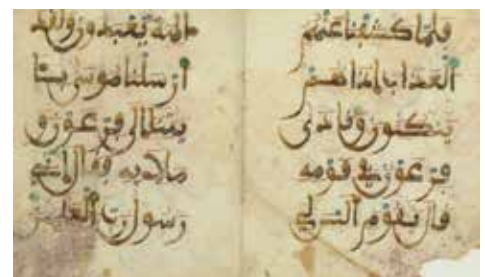 فلما كشفنا عنهم
العذاب اذا هم
ينكثون ونادى
فرعون في قومه
قال يقوم اليس لي
الهة يعبدون ولقد
ارسلنا موسى بـا
يتنا الى فرعون و
ملايه فقال اني
رسول رب العلمين